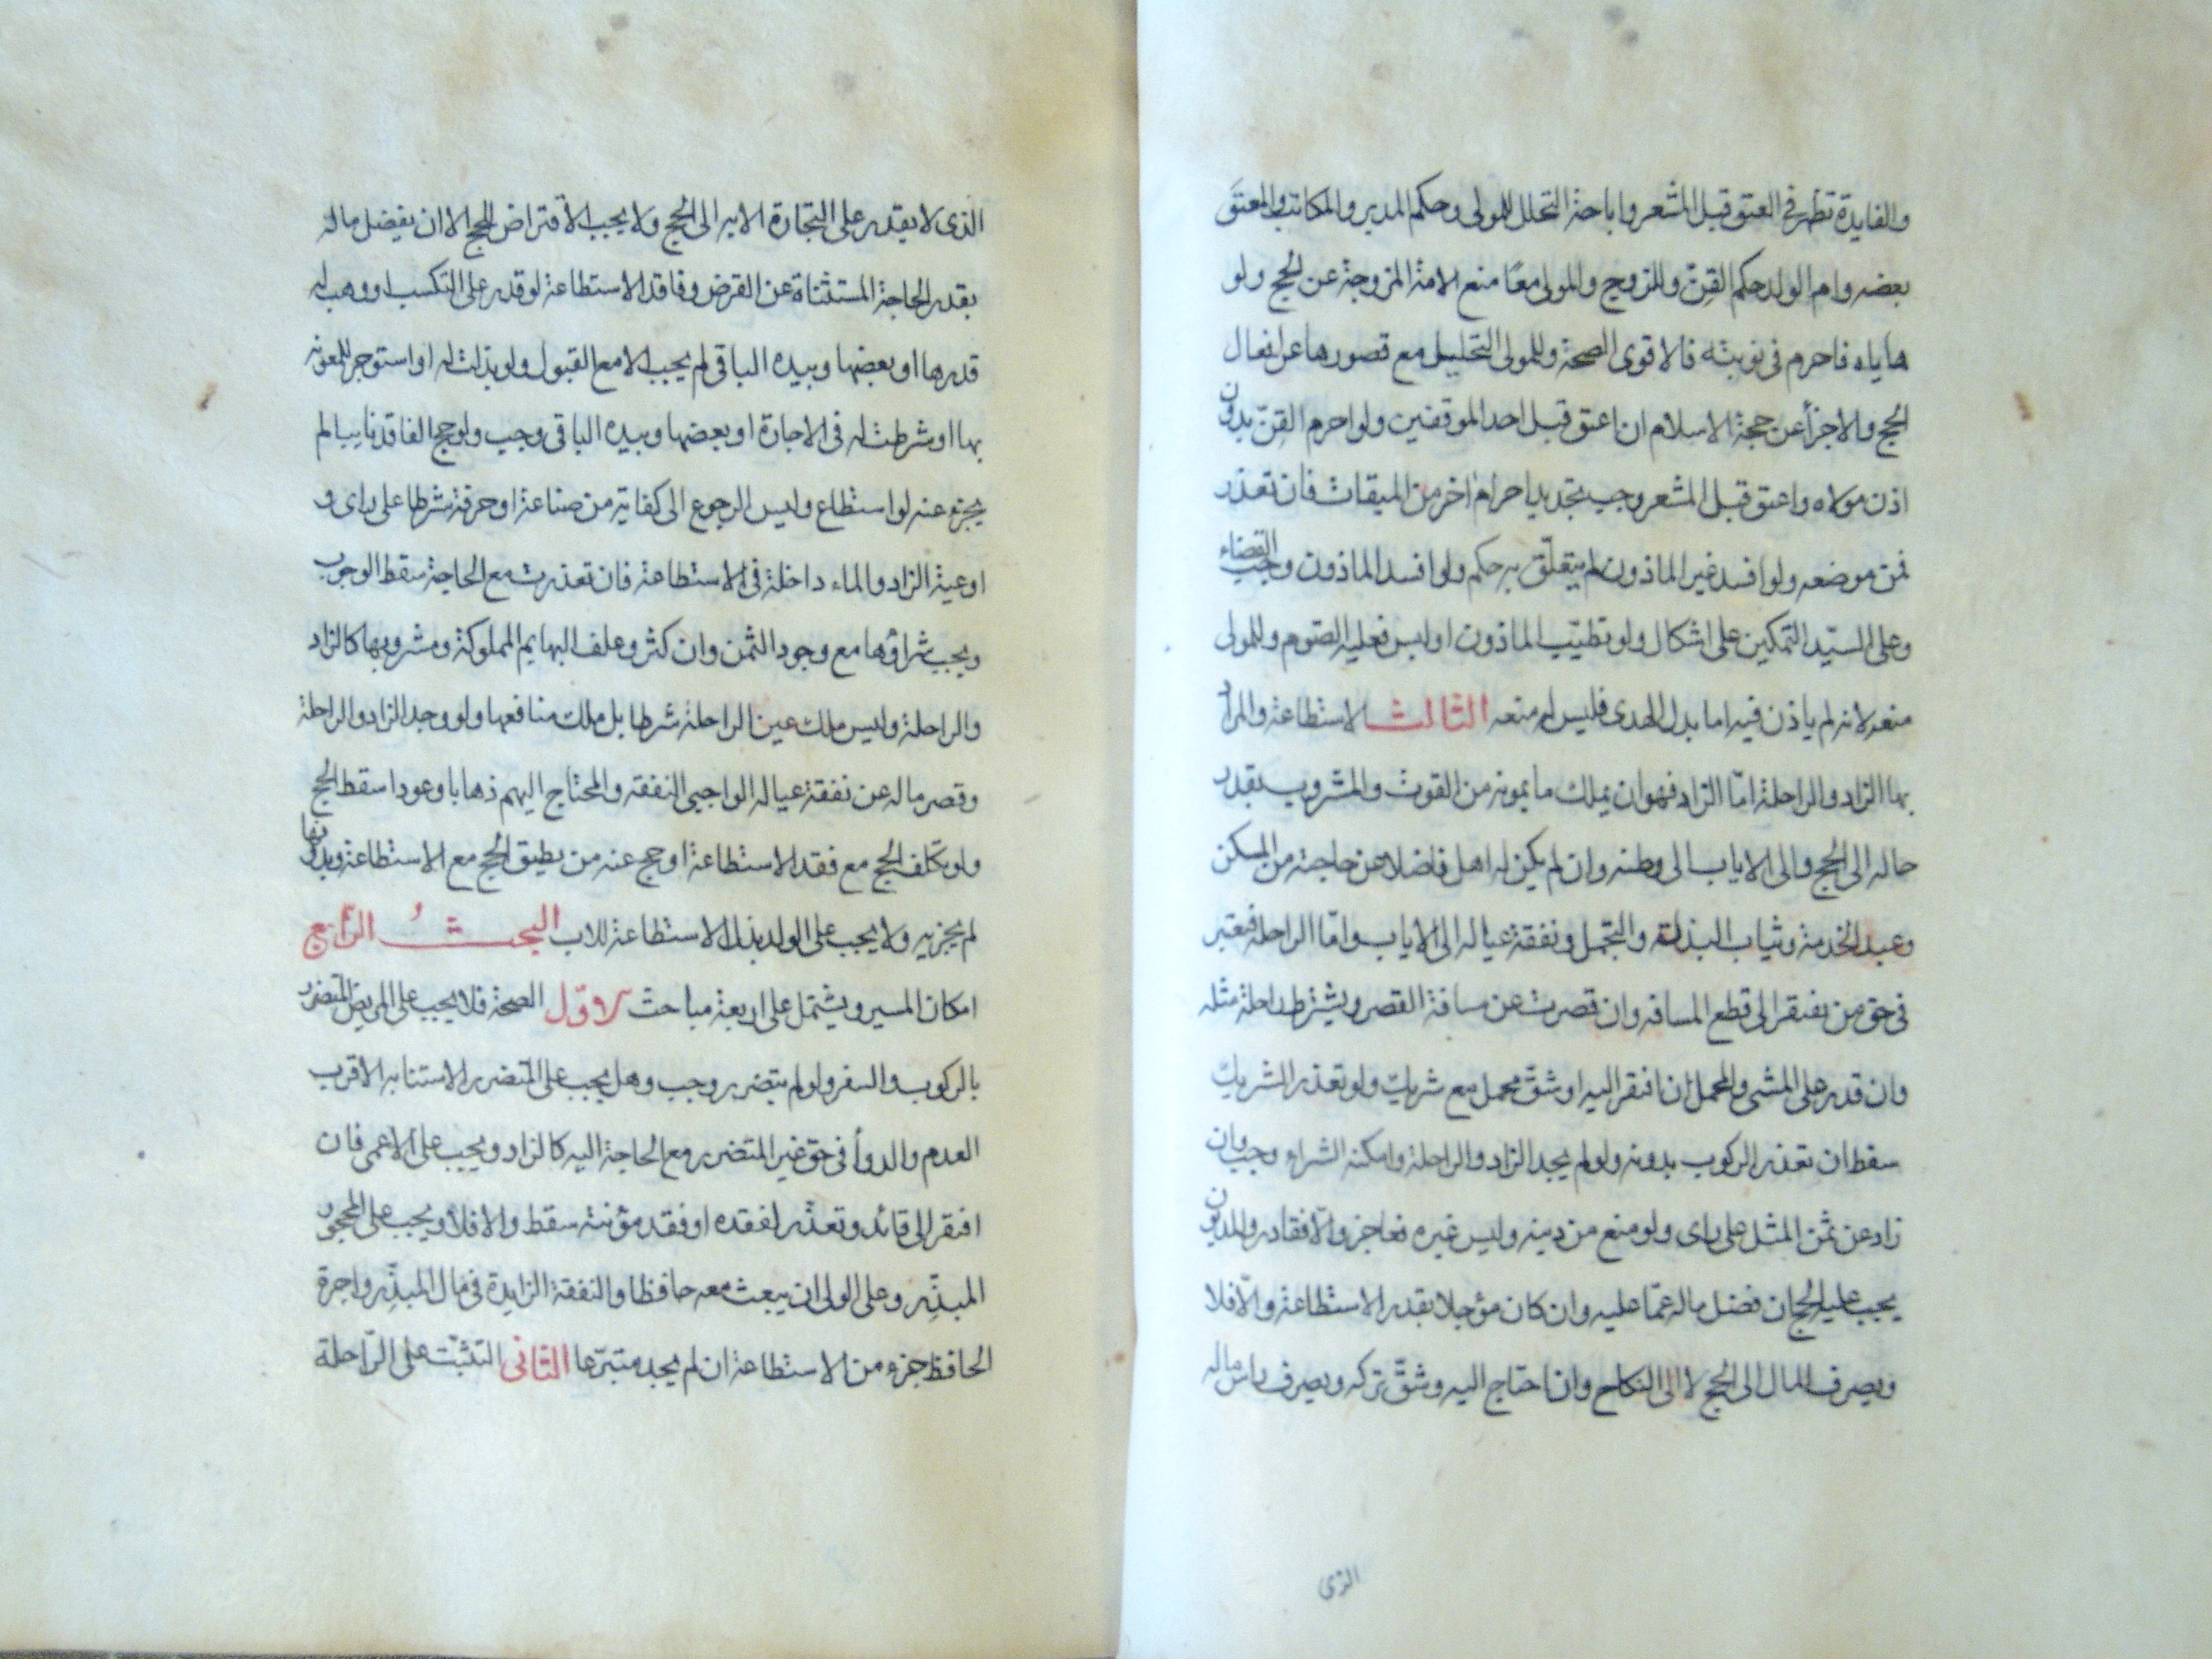 والفايدة تظهر في العتق قبل المشعر واباحة التحلل للمولى وحكم المدبر والمكاتب والمعتق
بعضه وام الولد حكم القنّ وللزوج والمولى معًا منع الامة المزوجة عن الحج ولو
هاياه فاحرم في نوبته فالاقوى الصحة وللمولى التحليل مع قصورها عن افعال
الحج والا اجزأ عن حجة الاسلام ان اعتق قبل احد الموقفين ولو احرم القنّ بدون
اذن مولاه واعتق قبل المشعر وجب تجديد احرام اخر من الميقات فان تعذر
فمن موضعه ولو افسد غير الماذون لم يتعلّق به حكم ولو افسد الماذون وجب القضاء
وعلى السيّد التمكين على اشكال ولو تطيّب الماذون او لبس فعليه الصّوم وللمولى
منعه لانه لم ياذن فيه اما بدل الهدى فليس له منعه الثالث الاستطاعة والمراد
بها الزاد والراحلة امّا الزاد فهو ان يملك ما يمونه من القوت والمشروب بقدر
حاله الى الحج والى الاياب الى وطنه وان لم يكن له اهل فاضلا عن حاجته من المسكن
وعبد الخدمة وثياب البذلة والتجّمل ونفقة عياله الى الاياب وامّا الراحلة فيعتبر
في حق من يفتقر الى قطع المسافه وان قصرت عن مسافة القصر ويشترط راحلة مثله
وان قدر على المشى والمحمل ان افتقر اليه او شقّ محمل مع شريك ولو تعذر الشريك
سقط ان تعذر الركوب بدونه ولو لم يجد الزاد والراحلة وامكنه الشراء وجب وان
زاد عن ثمن المثل على راى ولو منع من دينه وليس غيره فعاجز والّا فقادر والمديون
يجب عليه الحج ان فضل ماله عمّا عليه وان كان مؤجلا بقدر الاستطاعة والّا فلا
ويصرف المال الى الحج لا الى النكاح وان احتاج اليه وشقّ تركه ويصرف راس ماله
الذى
الذى لا يقدر على التجارة الا به الى الحج ولا يجب الاقتراض للحج الا ان يفضل ماله
بقدر الحاجة المستثناة عن القرض وفاقد الاستطاعة لو قدر على التكسب او وهب له
قدرها او بعضها وبيده الباقى لم يجب الا مع القبول ولو بذلت له او استوجر للمعونه
بها او شرطت له في الاجارة او بعضها وبيده الباقى وجب ولو حج الفاقد نايبا لم
يجزء عنه لو استطاع وليس الرجوع الى كفاية من صناعة او حرفة شرطا على راى و
اوعية الزاد والماء داخلة في الاستطاعة فان تعذرت مع الحاجة سقط الوجوب
ويجب شراؤها مع وجود الثمن وان كثر وعلف البهايم المملوكة ومشروبها كالزاد
والراحلة وليس ملك عين الراحلة شرطا بل ملك منافعها ولو وجد الزاد والراحلة
وقصر ماله عن نفقة عياله الواجبى النفقه والمحتاج اليهم ذهابا وعودا سقط الحج
ولو تكلف الحج مع فقد الاستطاعة او حج عنه من يطيق الحج مع الاستطاعة وبدونها
لم يجزيه ولا يجب على الولد بذل الاستطاعة للاب البحث الرابع
امكان المسير ويشتمل على اربعة مباحث الاوّل الصحة فلا يجب على المريض المتضرر
بالركوب والسفر ولو لم يتضرر وجب وهل يجب على المتضرر الاستنابه الاقرب
العدم والدوأ في حق غير المتضرر مع الحاجة اليه كالزاد ويجب على الاعمى فان
افتقر الى قائد وتعذّر لفقده او فقد مؤنته سقط والا فلا ويجب على المحجور
المبذّر وعلى الولى ان يبعث معه حافظا والنفقة الزايدة في مال المبذّر واجرة
الحافظ جزء من الاستطاعة ان لم يجد متبرّعا الثانى التثبّت على الرّاحلة